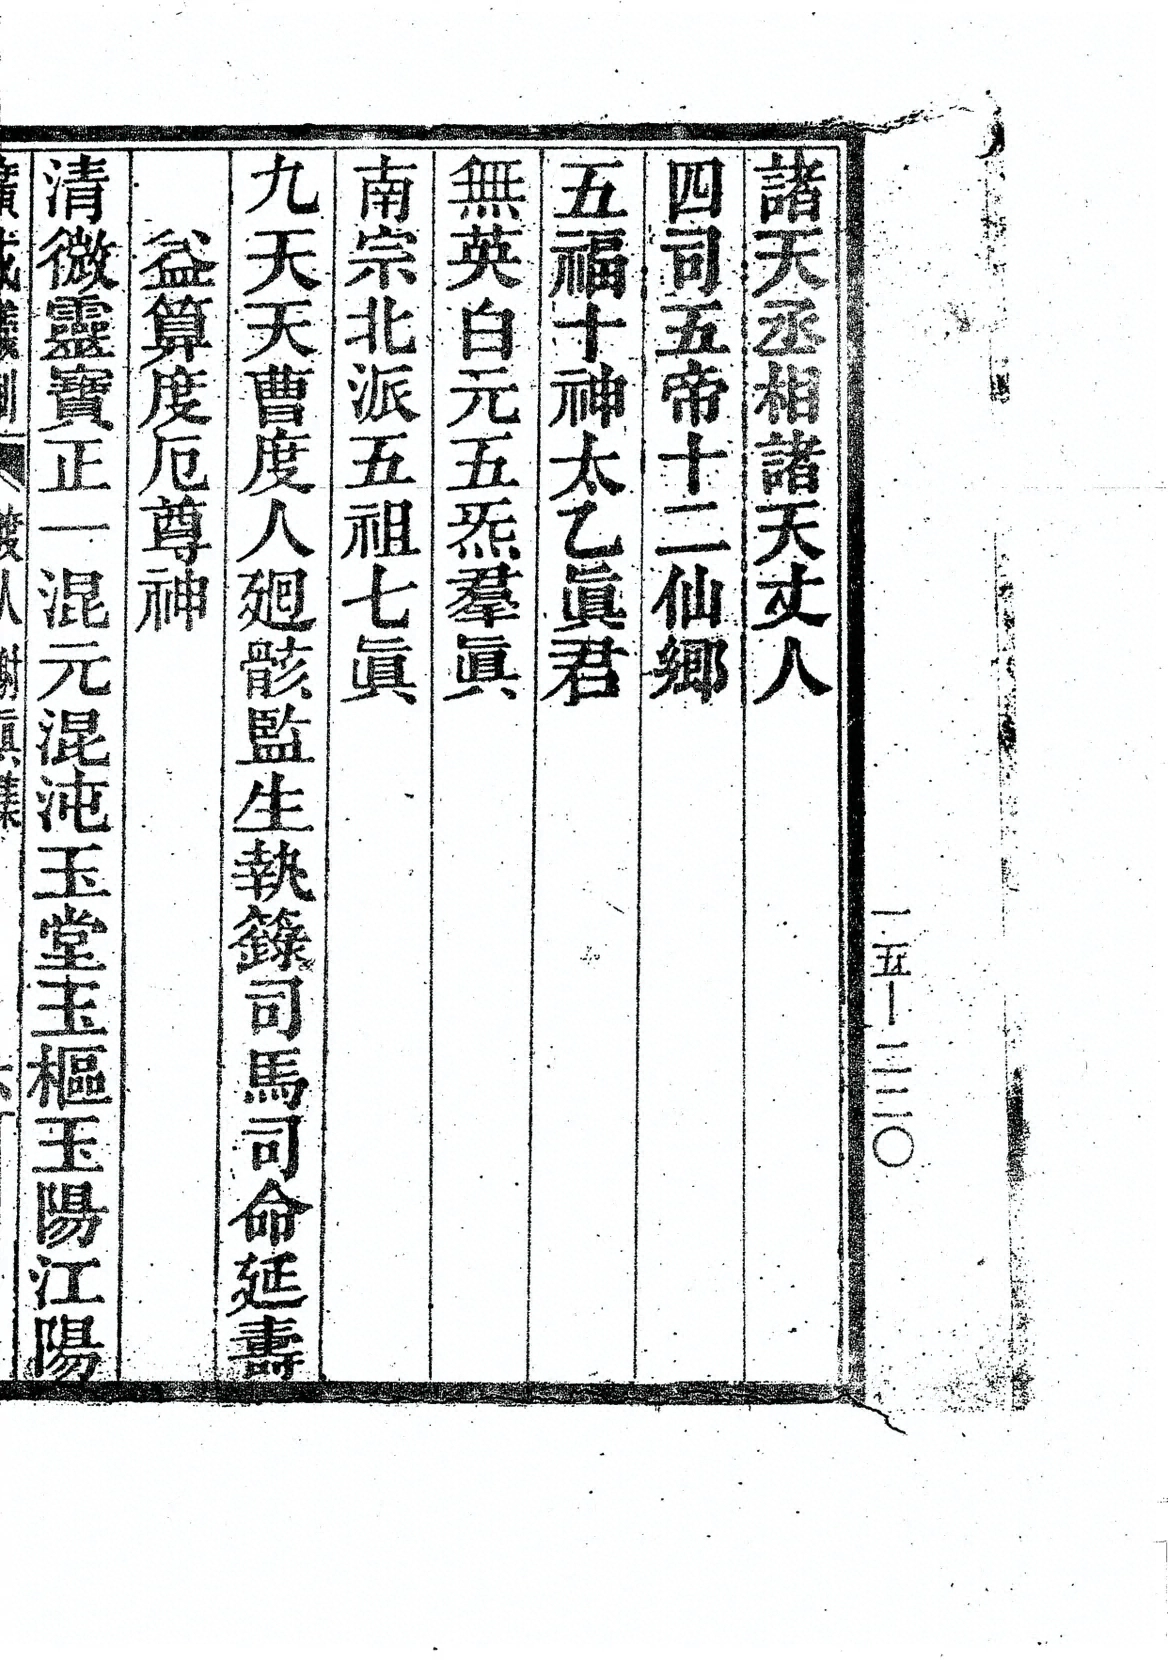 諸天丞相諸天丈人
四司五帝十二仙鄉
五福十神太乙眞君
無英白元五炁羣眞
南宗北派五祖七眞
九天天曹度人廻骸監生執籙司馬司命延壽
益算度厄尊神
清微靈寶正一混元混沌玉堂玉樞玉陽江陽
一五—二二〇